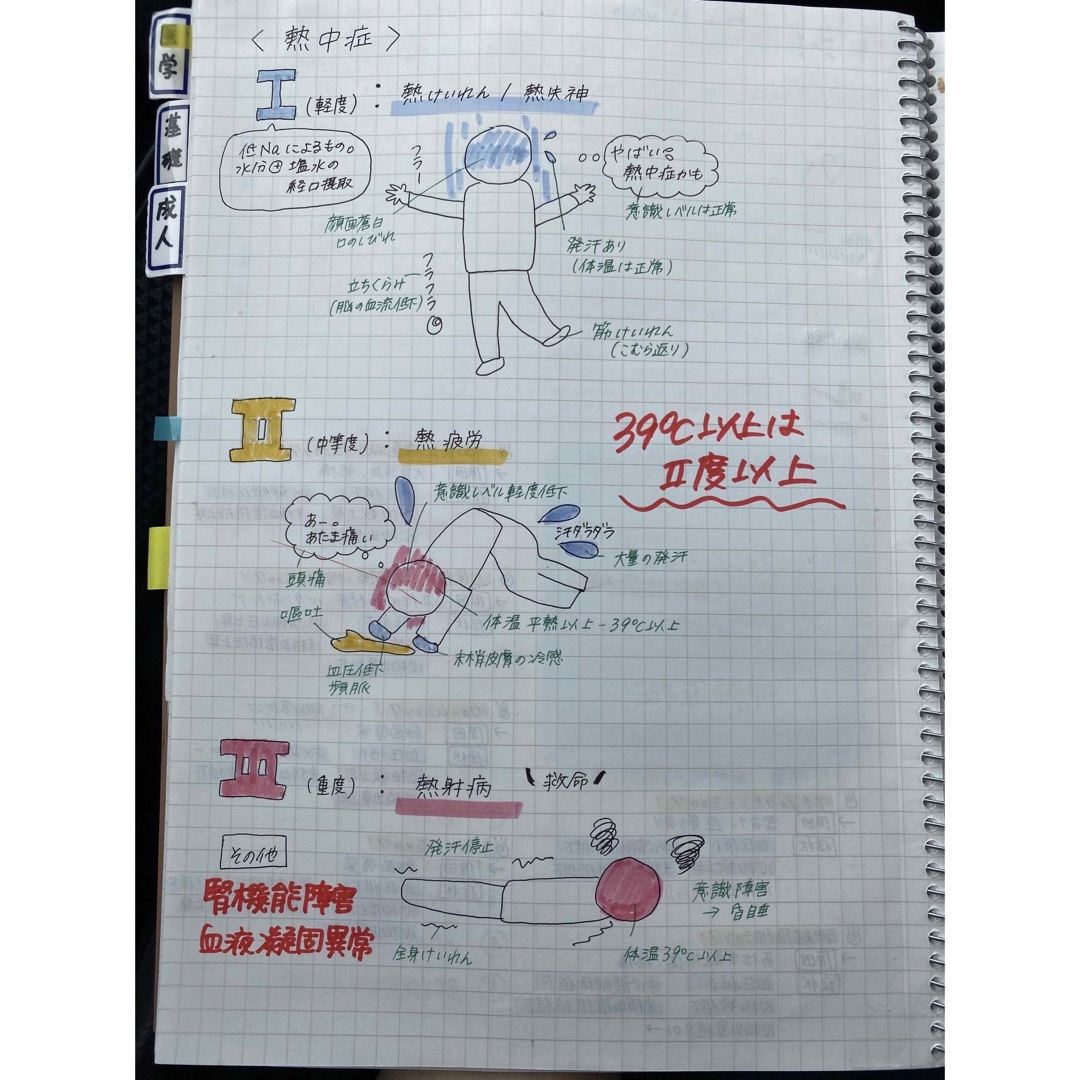 学
基礎
成人
〈 熱中症 〉
I (軽度) : 熱けいれん / 熱失神
低Naによるもの。
水分+塩水の
経口摂取
フラー
やばい。
熱中症かも
意識レベルは正常
顔面蒼白
口のしびれ
発汗あり
(体温は正常)
立ちくらみ
(脳の血流低下)
フラフラ
筋けいれん
(こむら返り)
II (中等度) : 熱疲労
39℃以上は
II度以上
意識レベル軽度低下
あー。
あたま痛い
汗ダラダラ
大量の発汗
頭痛
嘔吐
体温 平熱以上-39℃以上
末梢皮膚の冷感
血圧低下
頻脈
III (重度) : 熱射病 \救命/
その他
腎機能障害
血液凝固異常
発汗停止
意識障害
→ 昏睡
全身けいれん
体温39℃以上